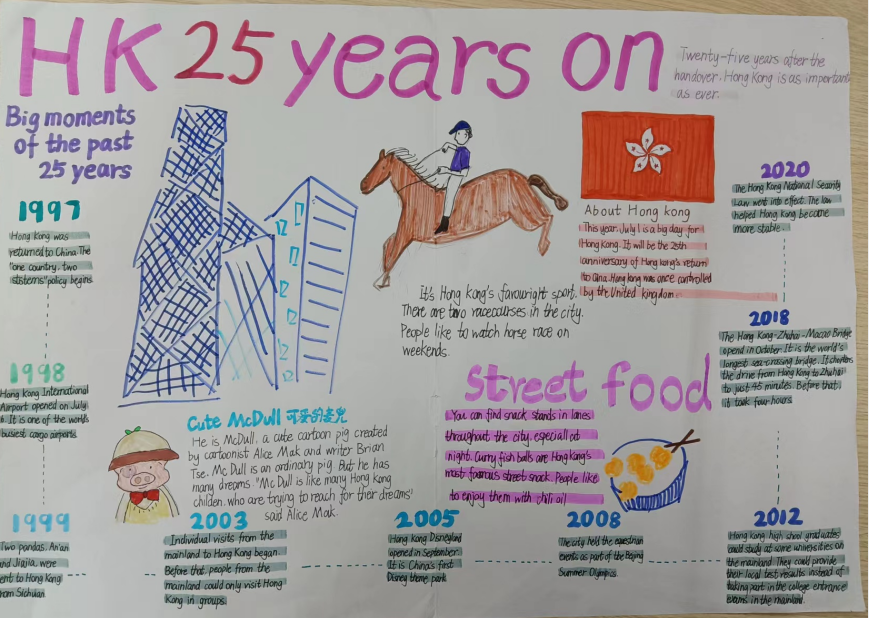 HK 25 years on
Twenty-five years after the
handover. Hong Kong is as important
as ever.
Big moments
of the past
25 years
1997
Hong Kong was
returned to China. The
"one country, two
sistems" policy begins
1998
Hong Kong International
Airport opened on July
6. It is one of the worlds
busiest cargo airports.
1999
Two pandas. An'an
and Jiajia, were
ent to Hong Kong
rom Sichuan
It's Hong Kong's favouright sport.
There are two racecourses in the city.
People like to watch horse race on
weekends.
About Hong kong
This year. July 1 is a big day for
Hong Kong. It will be the 25th
anniversary of Hong kong's return
to Cina. Hong Kong was once controlled
by the United kingdom
2020
The Hong Kong National Security
Law went into effect. The law
helped Hong Kong become
more stable.
2018
The Hong Kong-Zhuhai-Macao Bridge
opend in October. It is the world's
longest sea-crossing bridge. It shortens
the drive from Hong Kong to Zhuhai
to just 45 minutes. Before that,
it took four hours
Street food
You can find snack stands in lanes
throughout the city. especiall at
night. Curry fish balls are Hong Kong's
most famous street snack. People like
to enjoy them with chili oil
Cute McDull 可爱的麦兜
He is McDull. a cute cartoon pig created
by cartoonist Alice Mak and writer Brian
Tse. Mc Dull is an ordinary pig. But he has
many dreams. "Mc Dull is like many Hong Kong
childen. who are trying to reach for their dreams"
said Alice Mak.
2003
Individual visits from the
mainland to Hong Kong began.
Before that people from the
mainland could only visit Hong
Kong in groups.
2005
Hong Kong Disneyland
opened in September.
It is China's first
Disney theme park
2008
The city held the equestrian
events as part of the Beijing
Summer Olympics.
2012
Hong Kong high school graduates
could study at some universities on
the mainland. They could provide
their local test results instead of
taking part in the college entrance
exams in the mainland.